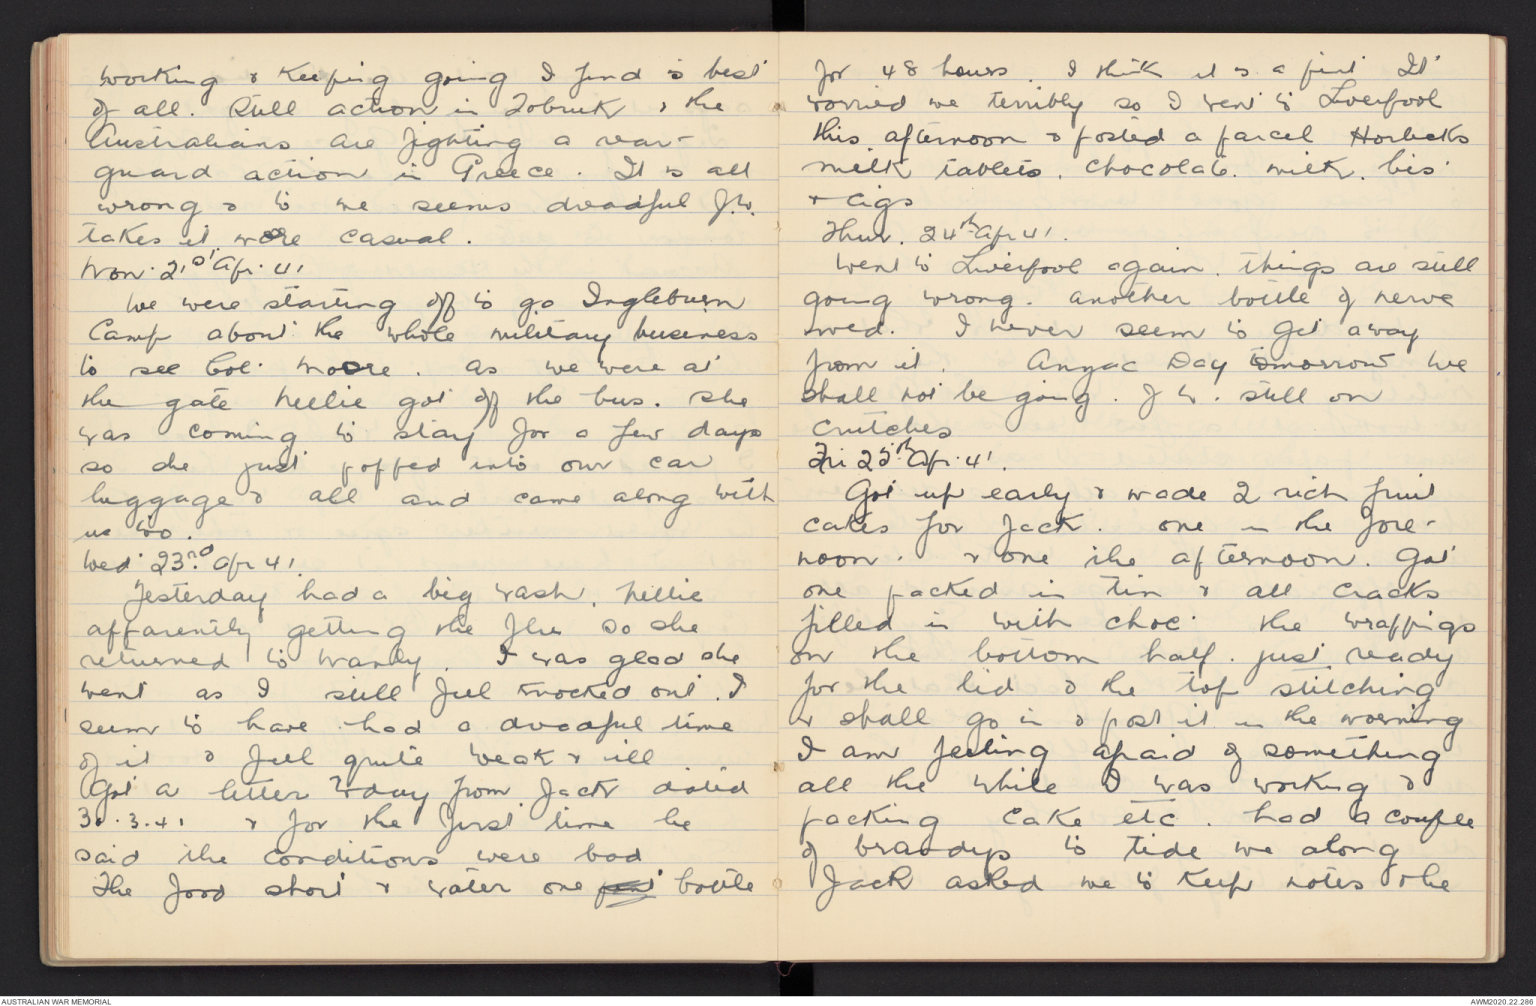 working & keeping going I find is best
of all. Still action in Tobruk & the
Australians are fighting a rear-
guard action in Greece. It is all
wrong & to me seems dreadful J.W.
takes it more casual.
Mon. 21st Apr. 41.
We were starting off to go Ingleburn
Camp about the whole military business
to see Col. Moore. As we were at
the gate Nellie got off the bus. She
was coming to stay for a few days
so she just popped into our car
luggage & all and came along with
us too.
Wed 23rd Apr 41.
Yesterday had a big wash. Nellie
apparently getting the flu so she
returned to Manly. I was glad she
went as I still feel knocked out. I
seem to have had a dreadful time
of it & feel quite weak & ill
Got a letter today from Jack dated
30.3.41 & for the first time he
said the conditions were bad
The food short & water one pint bottle
for 48 hours. I think it is a pint It
worried me terribly so I went to Liverpool
this afternoon & posted a parcel Horlicks
milk tablets. chocolate. milk. bis
& cigs
Thur. 24th Apr 41.
Went to Liverpool again. things are still
going wrong. another bottle of nerve
med. I never seem to get away
from it. Anzac Day tomorrow we
shall not be going. J W. still on
crutches
Fri 25th Apr. 41.
Got up early & made 2 rich fruit
cakes for Jack. one in the fore-
noon. & one the afternoon. Got
one packed in tin & all cracks
filled in with choc. the wrappings
on the bottom half. just ready
for the lid & the top stitching
& shall go in & post it in the morning
I am feeling afraid of something
all the while I was working &
packing cake etc. had a couple
of brandys to tide me along
Jack asked me to keep notes & he
AUSTRALIAN WAR MEMORIAL
AWM2020.22.286